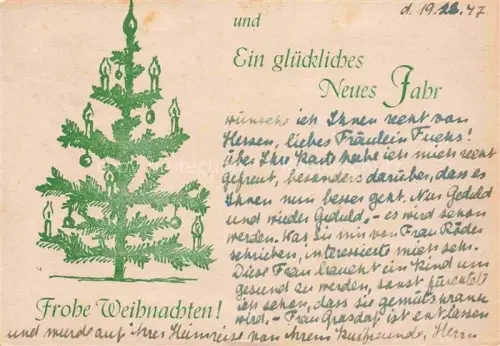 d. 19.12.47
und
Ein glückliches
Neues Jahr
wünsche ich Ihnen recht von
Herzen, liebes Fräulein Fuchs!
Über Ihre Karte habe ich mich recht
gefreut, besonders darüber, dass es
Ihnen nun besser geht. Nur Geduld
und wieder Geduld, – es wird schon
werden. Was Sie mir von Frau Röder
schrieben, interessierte mich sehr.
Diese Frau braucht ein Kind um
gesund zu werden, sonst fürchte
ich schon, dass sie gemütskrank
wird. – Frau ist entlassen
und wurde auf ihrer Heimreise von ihrem Kurfreunde, Herrn
Frohe Weihnachten!